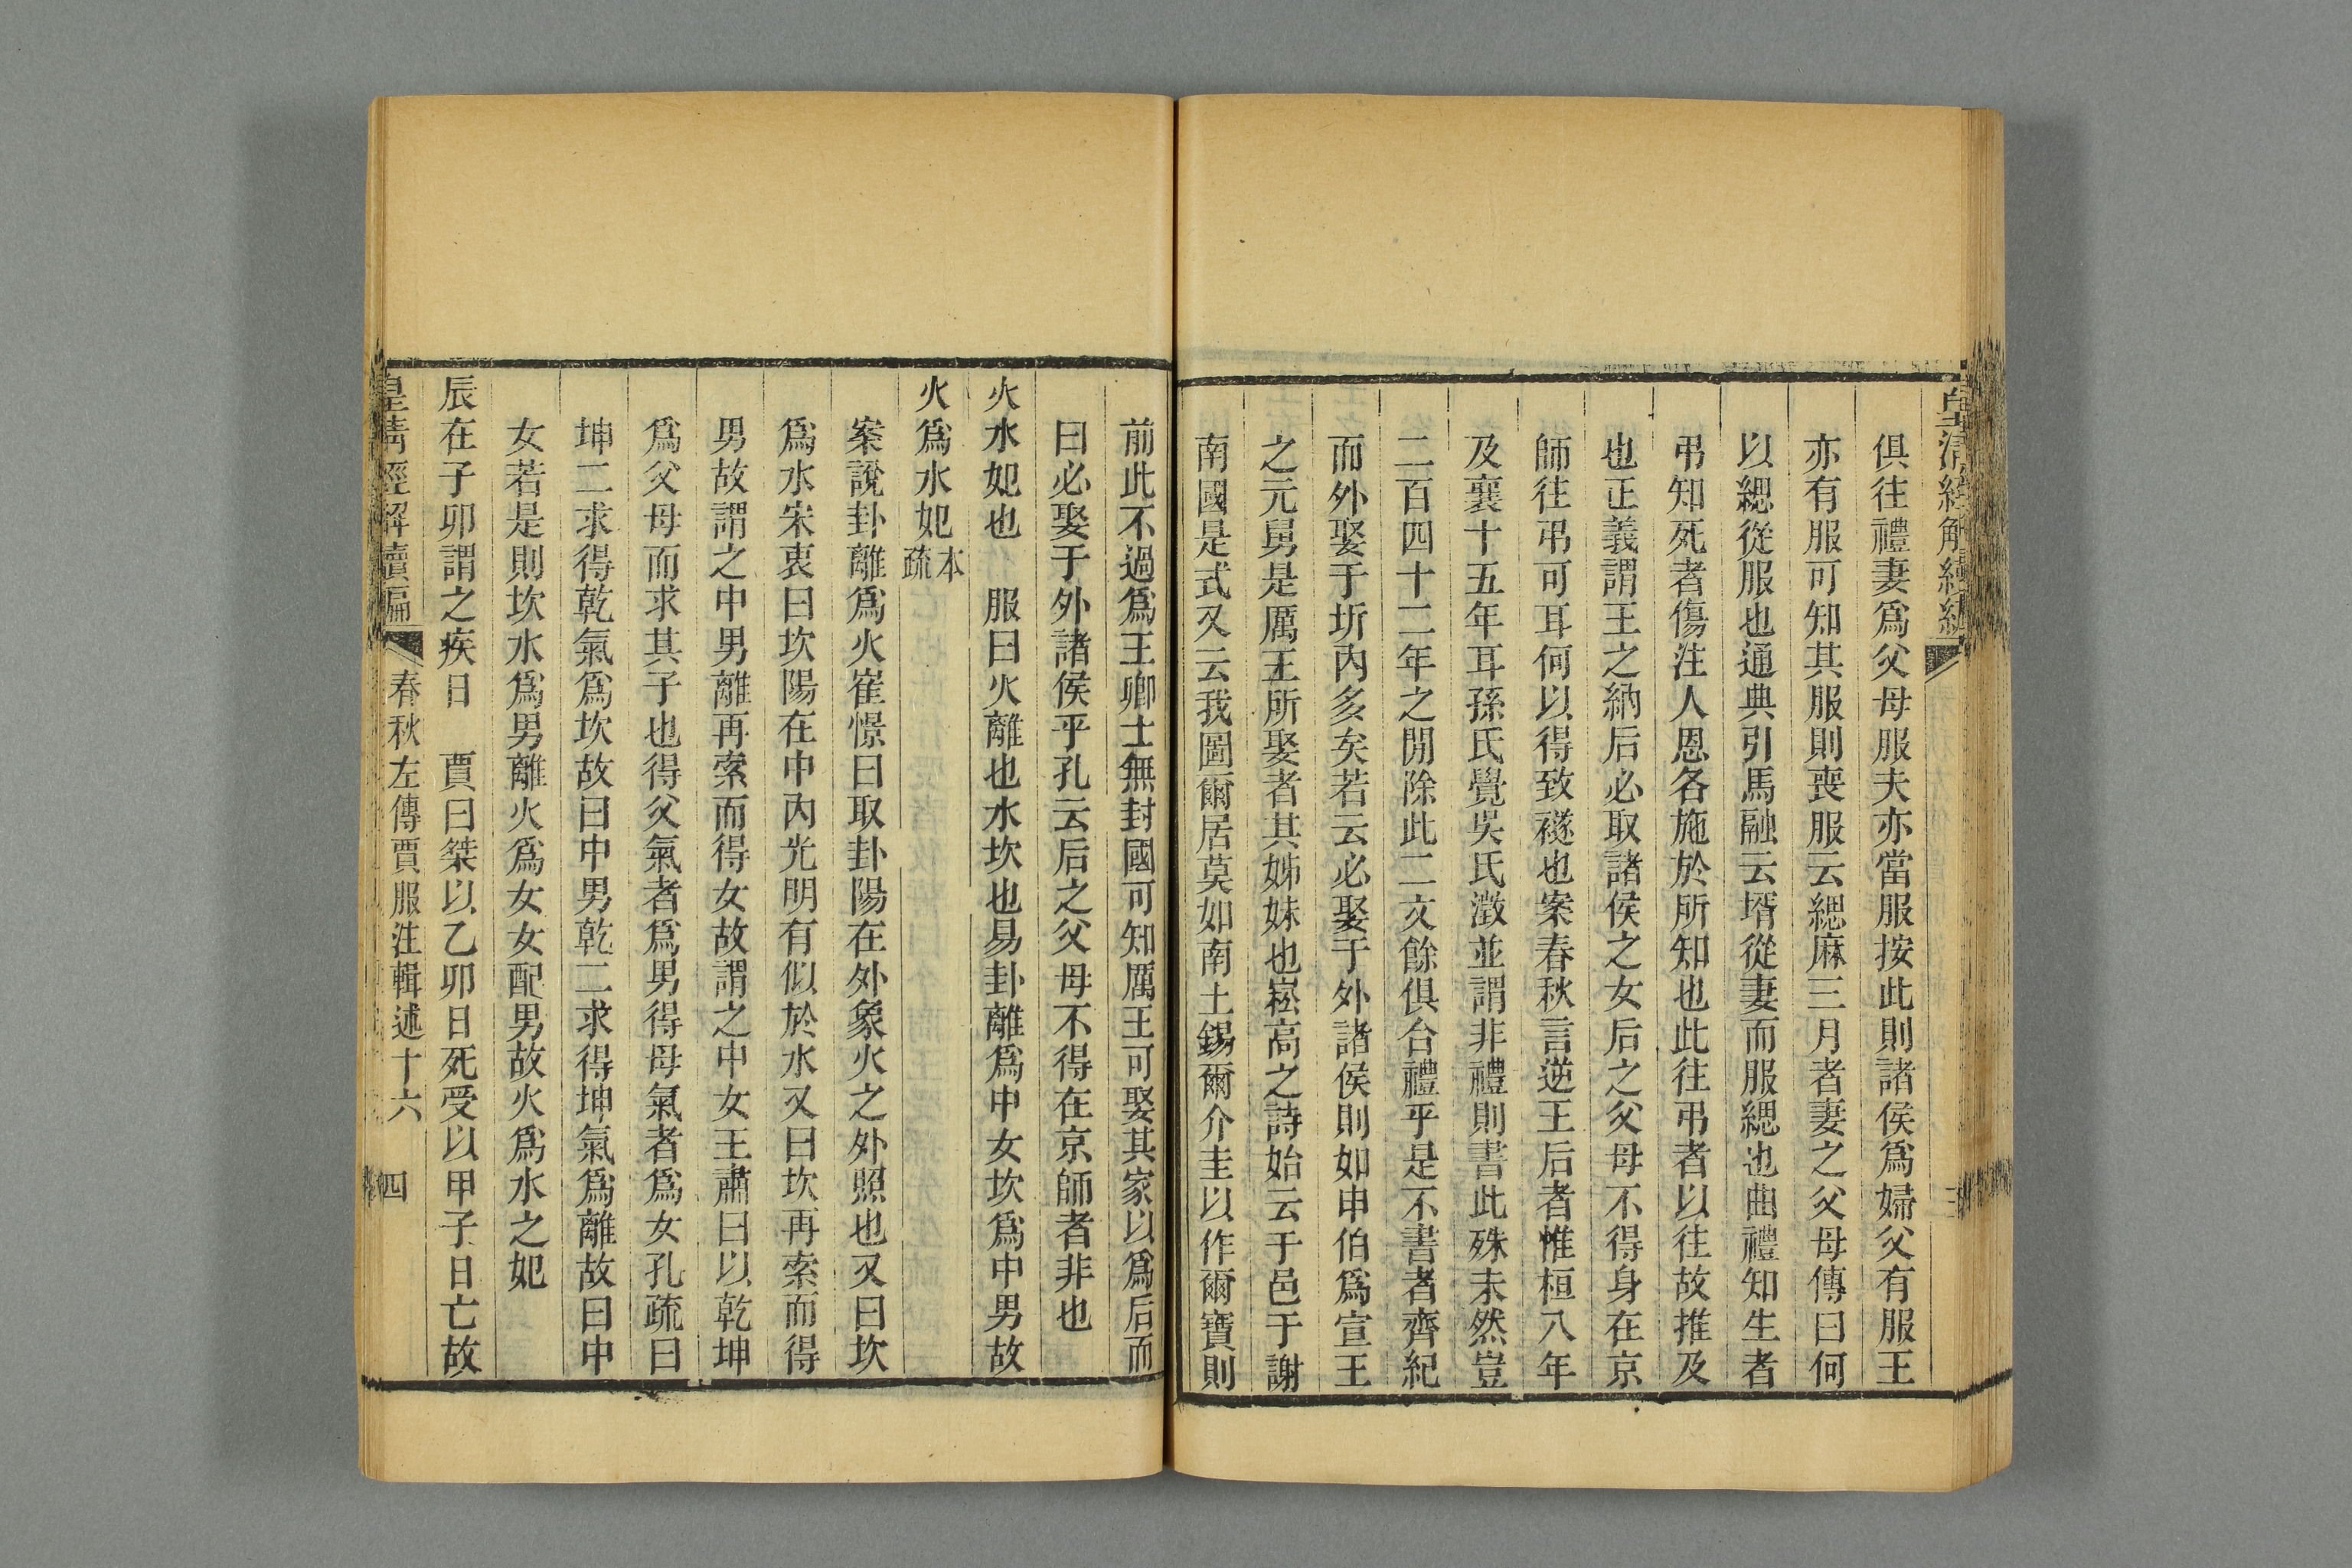 皇清經解續編
俱往禮妻爲父母服夫亦當服按此則諸侯爲婦父有服王
亦有服可知其服則喪服云緦麻三月者妻之父母傳曰何
以緦從服也通典引馬融云壻從妻而服緦也曲禮知生者
弔知死者傷注人恩各施於所知也此往弔者以往故推及
也正義謂王之納后必取諸侯之女后之父母不得身在京
師往弔可耳何以得致襚也案春秋言逆王后者惟桓八年
及襄十五年耳孫氏覺吳氏澂並謂非禮則書此殊未然豈
二百四十二年之閒除此二文餘俱合禮乎是不書者齊紀
而外娶于圻內多矣若云必娶于外諸侯則如申伯爲宣王
之元舅是厲王所娶者其姊妹也崧高之詩始云于邑于謝
南國是式又云我圖爾居莫如南土錫爾介圭以作爾寶則
前此不過爲王卿士無封國可知厲王可娶其家以爲后而
曰必娶于外諸侯乎孔云后之父母不得在京師者非也
火水妃也　服曰火離也水坎也易卦離爲中女坎爲中男故
火爲水妃本疏
案說卦離爲火崔憬曰取卦陽在外象火之外照也又曰坎
爲水宋衷曰坎陽在中內光明有似於水又曰坎再索而得
男故謂之中男離再索而得女故謂之中女王肅曰以乾坤
爲父母而求其子也得父氣者爲男得母氣者爲女孔疏曰
坤二求得乾氣爲坎故曰中男乾二求得坤氣爲離故曰中
女若是則坎水爲男離火爲女女配男故火爲水之妃
辰在子卯謂之疾日　賈曰桀以乙卯日死受以甲子日亡故
皇清經解續編　春秋左傳賈服注輯述十六　四